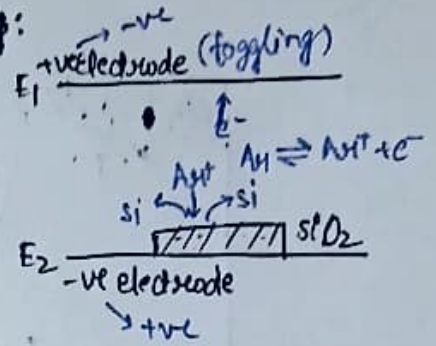 -ve
+ve electrode (toggling)
E1
e-
Ar ⇌ Ar+ + e-
Ar+
Si
Si
SiO2
E2
-ve electrode
+ve